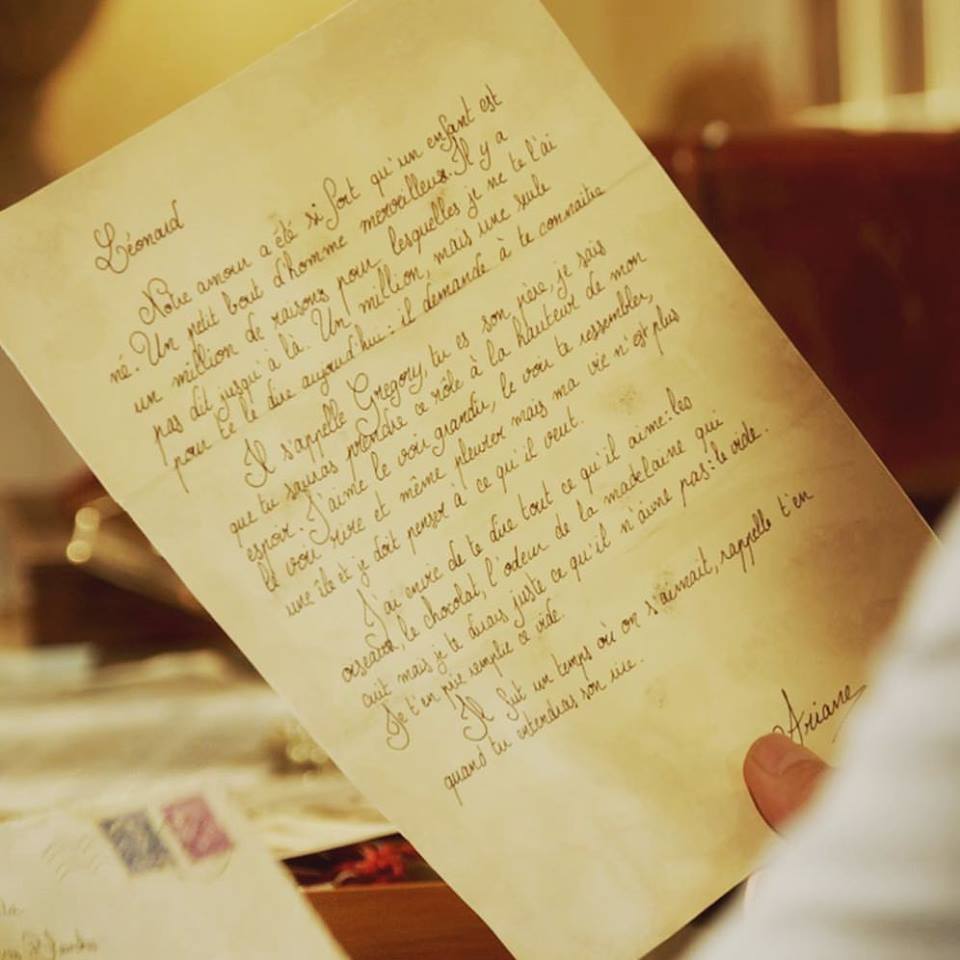 Léonard
Notre amour a été si fort qu'un enfant est
né. Un petit bout d'homme merveilleux. Il y a
un million de raisons pour lesquelles je ne te l'ai
pas dit jusqu'à là. Un million, mais une seule
pour te le dire aujourd'hui: il demande à te connaitre
Il s'appelle Gregory, tu es son père, je sais
que tu sauras prendre ce rôle à la hauteur de mon
espoir. J'aime le voir grandir, le voir te ressembler,
le voir rire et même pleurer mais ma vie n'est plus
une île et je doit penser à ce qu'il veut.
J'ai envie de te dire tout ce qu'il aime: les
oiseaux, le chocolat, l'odeur de la madelaine qui
cuit mais je te dirais juste ce qu'il n'aime pas: le vide.
Je t'en prie remplie ce vide.
Il fut un temps où on s'aimait, rappelle t'en
quand tu entendras son rire.
Ariane